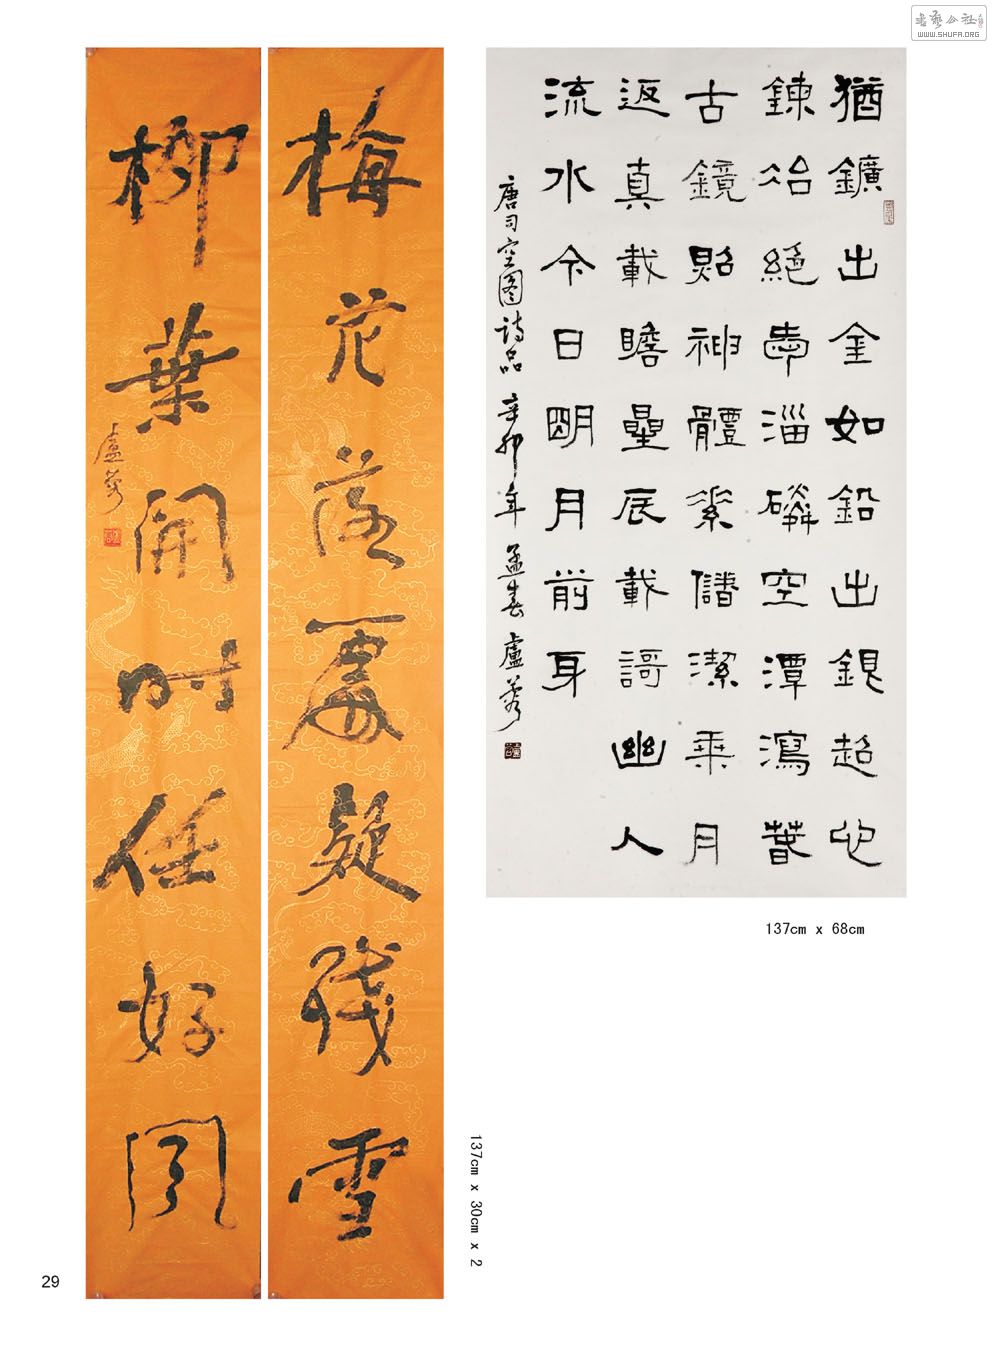 書艺公社
WWW.SHUFA.ORG
梅花落處疑殘雪
柳葉開時任好風
盧
猶鑛出金如鉛出銀超心
鍊冶絕愛淄磷空潭瀉春
古鏡照神體素儲潔乘月
返真載瞻星辰載謌幽人
流水今日明月前身
唐司空图诗品 辛卯年孟春 盧
137cm x 68cm
137cm x 30cm x 2
29